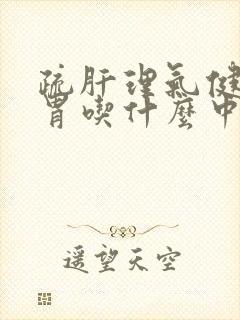 疏肝理气健
胃喫什麽中
遥望天空